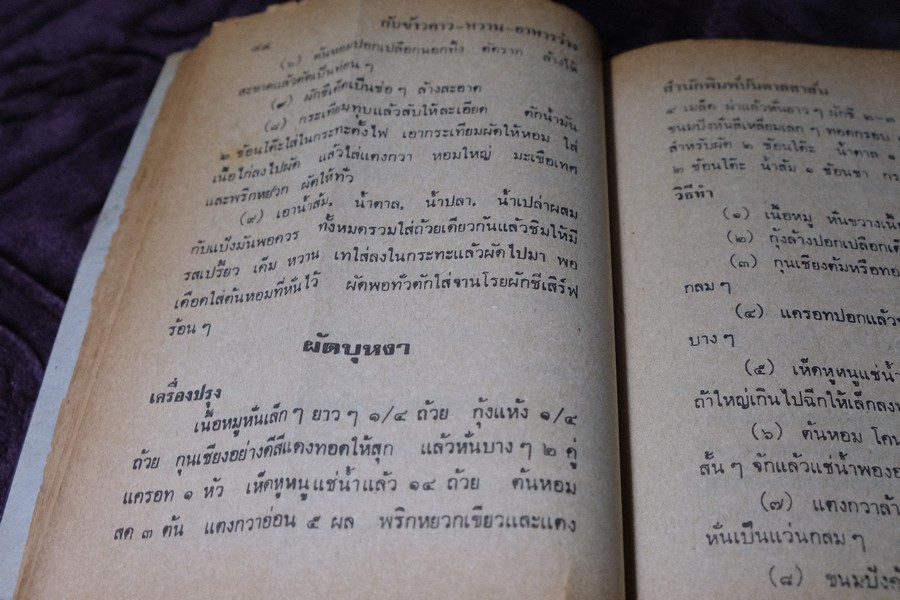 ๔๕
กับข้าวคาว-หวาน-อาหารว่าง
ต้นหอมปอกเปลือกนอกทิ้ง ตัดราก ล้างให้
สะอาดแล้วตัดเป็นท่อน ๆ
(๗) ผักชีเด็ดเป็นช่อ ๆ ล้างสะอาด
(๘) กระเทียมทุบแล้วสับให้ละเอียด ตักน้ำมัน
๒ ช้อนโต๊ะใส่ในกระทะตั้งไฟ เอากระเทียมผัดให้หอม ใส่
เนื้อไก่ลงไปผัด แล้วใส่แตงกวา หอมใหญ่ มะเขือเทศ
และพริกหยวก ผัดให้ทั่ว
(๙) เอาน้ำส้ม, น้ำตาล, น้ำปลา, น้ำเปล่าผสม
กับแป้งมันพอควร ทั้งหมดรวมใส่ถ้วยเดียวกันแล้วชิมให้มี
รสเปรี้ยว เค็ม หวาน เทใส่ลงในกระทะแล้วผัดไปมา พอ
เดือดใส่ต้นหอมที่หั่นไว้ ผัดพอทั่วตักใส่จานโรยผักชีเสิร์ฟ
ร้อน ๆ
ผัดบุหงา
เครื่องปรุง
เนื้อหมูหั่นเล็ก ๆ ยาว ๆ ๑/๔ ถ้วย กุ้งแห้ง ๑/๔
ถ้วย กุนเชียงอย่างดีสีแดงทอดให้สุก แล้วหั่นบาง ๆ ๒ คู่
แครอท ๑ หัว เห็ดหูหนูแช่น้ำแล้ว ๑๔ ถ้วย ต้นหอม
สด ๓ ต้น แตงกวาอ่อน ๕ ผล พริกหยวกเขียวและแดง
สำนักพิมพ์บันดาลสาส์น
๔ เมล็ด ผ่าแล้วหั่นยาว ๆ ผักชี ๒-๓
ขนมปังหั่นสี่เหลี่ยมเล็ก ๆ ทอดกรอบ
สำหรับผัด ๒ ช้อนโต๊ะ น้ำตาล ๑
๒ ช้อนโต๊ะ น้ำส้ม ๑ ช้อนชา
วิธีทำ
(๑) เนื้อหมู หั่นขวาง
(๒) กุ้งล้างปอกเปลือก
(๓) กุนเชียงต้มหรือทอ
กลม ๆ
(๔) แครอทปอกแล้ว
บาง ๆ
(๕) เห็ดหูหนูแช่น้ำ
ถ้าใหญ่เกินไปฉีกให้เล็กลง
(๖) ต้นหอม โคน
สั้น ๆ จักแล้วแช่น้ำพอง
(๗) แตงกวาล้า
หั่นเป็นแว่นกลม ๆ
(๘) ขนมปัง